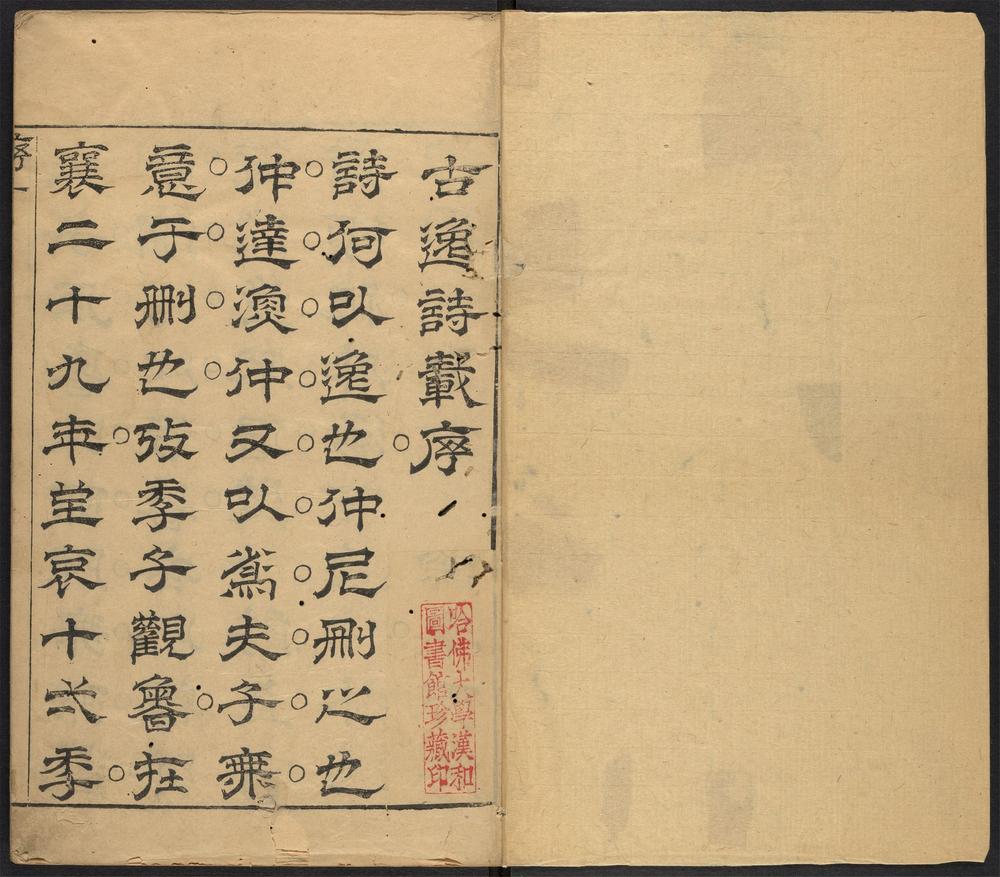 古逸詩載序
詩何以逸也仲尼刪之也
仲達漁仲又以為夫子無
意于刪也攷季子觀魯在
襄二十九年至哀十弌秊
序一
哈佛大學漢和
圖書館珍藏印